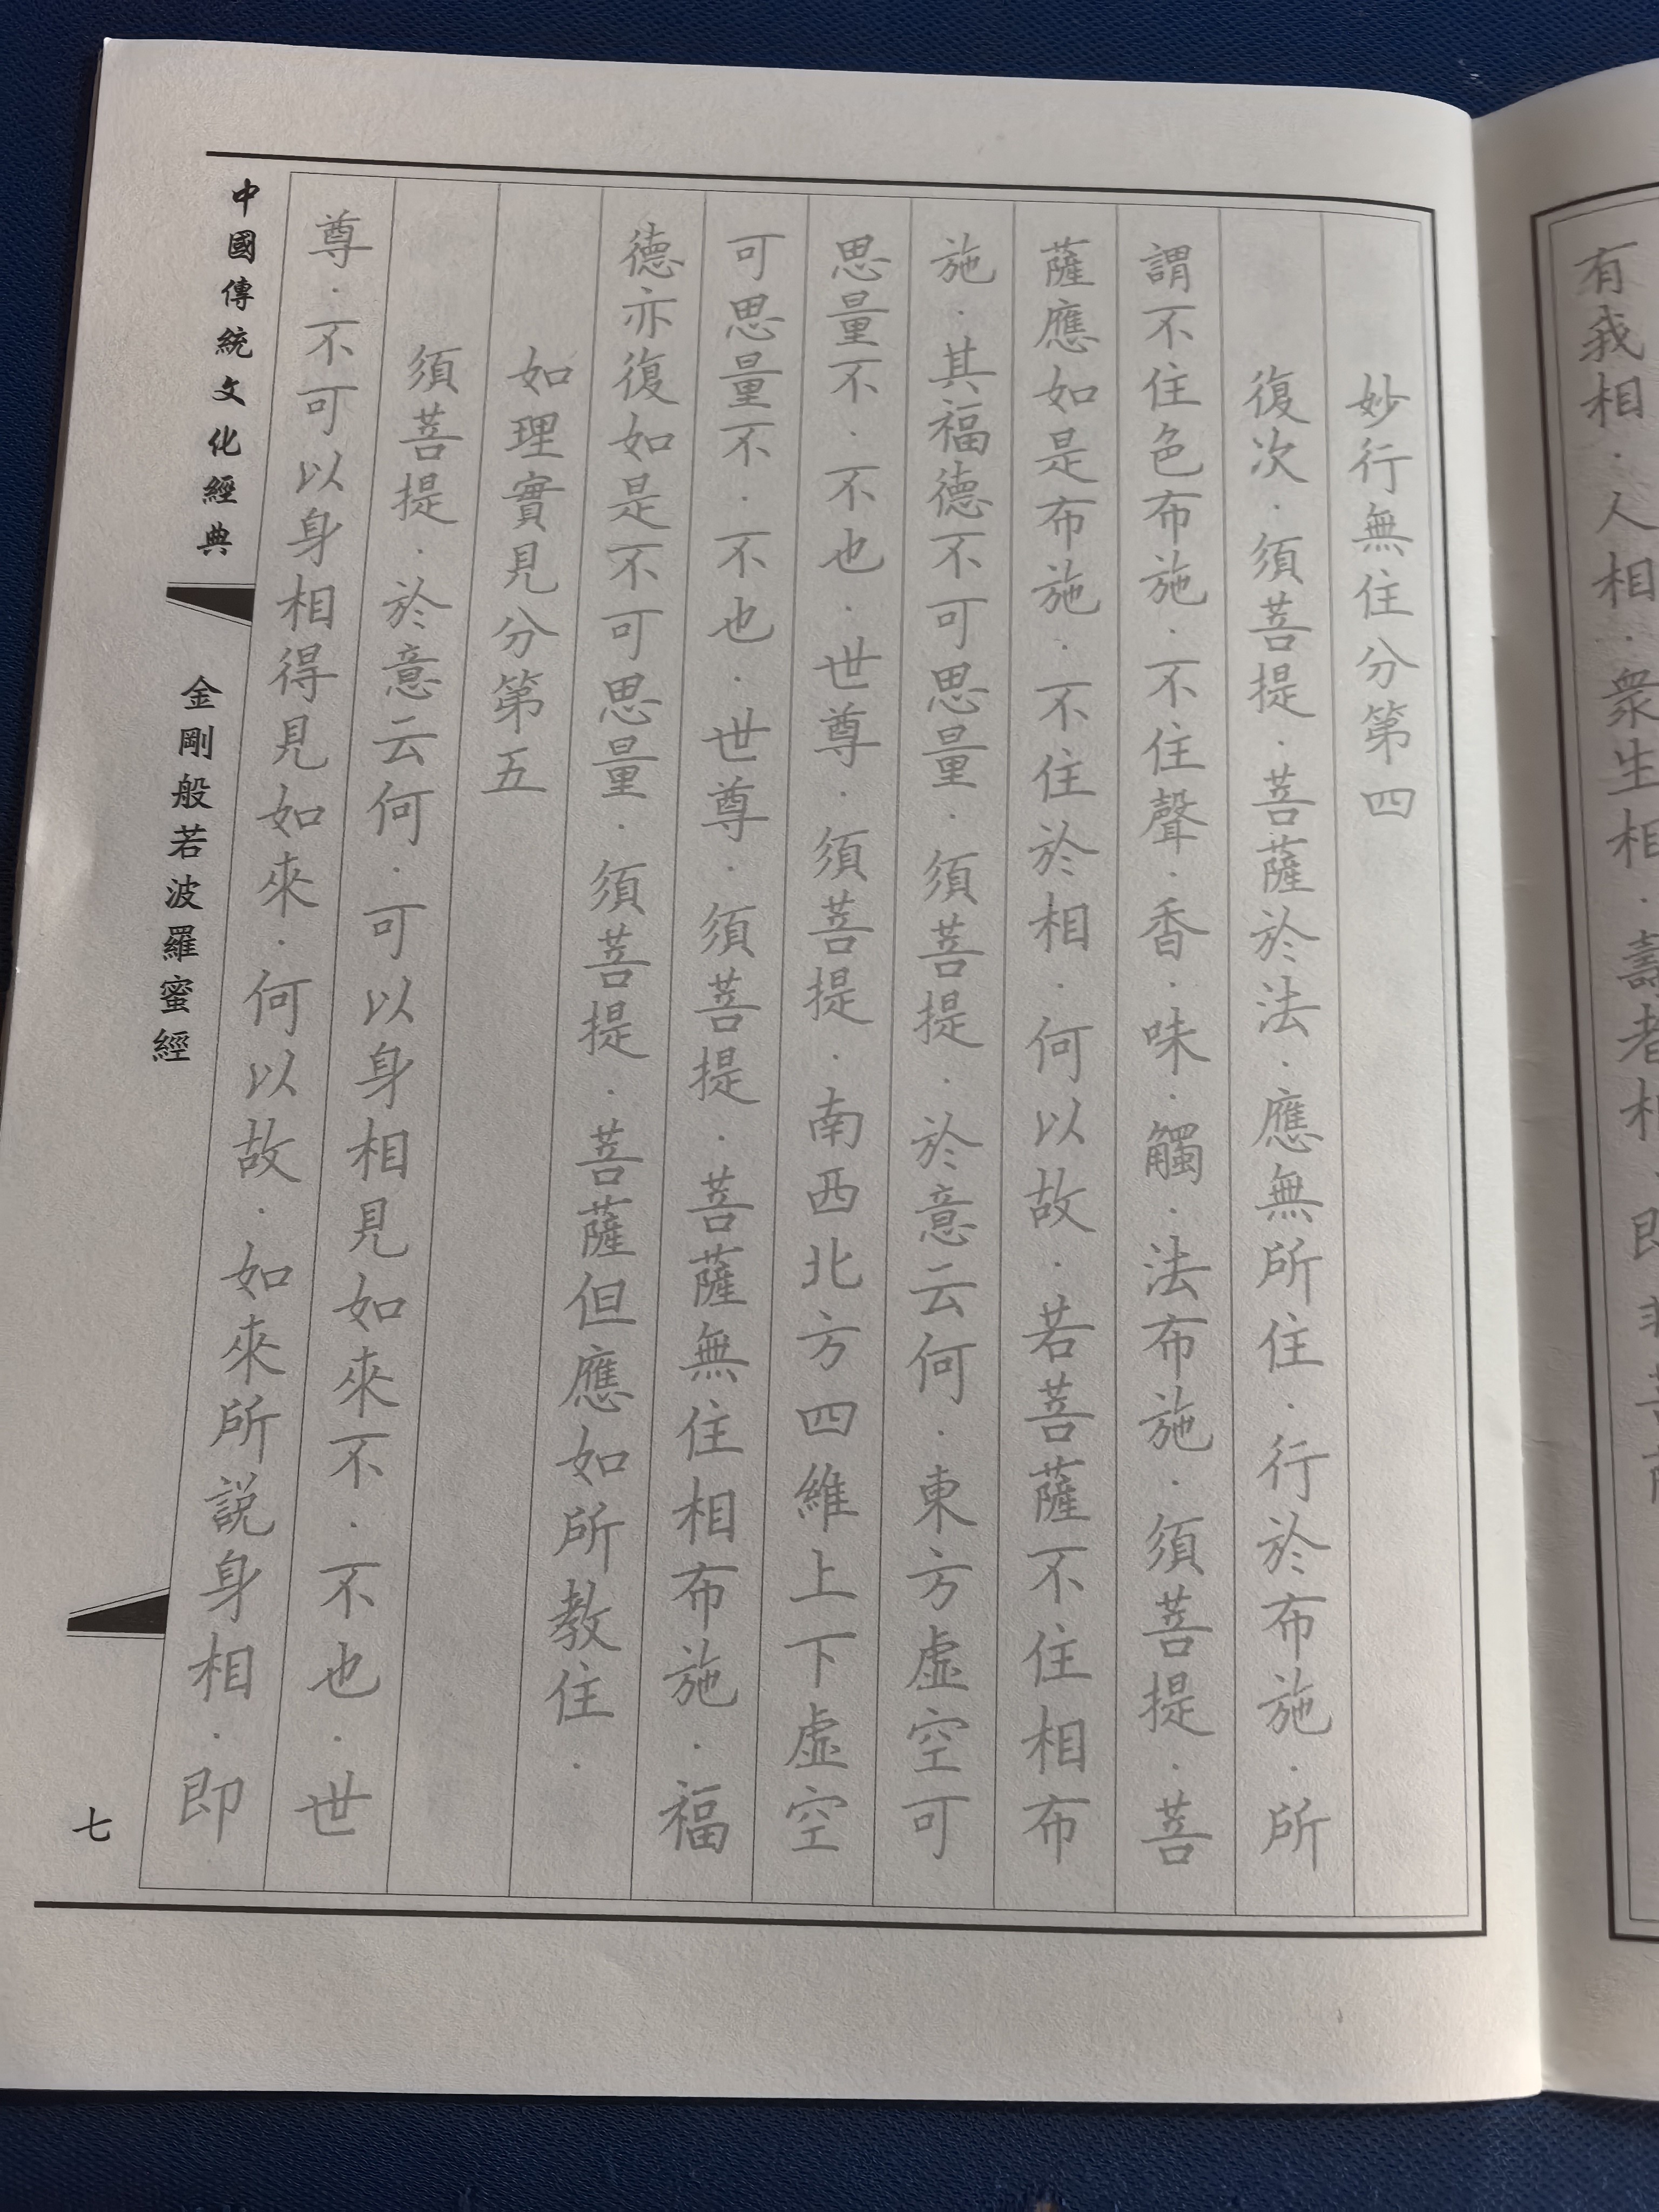 有我相·人相·衆生相·壽者相·即非菩薩
妙行無住分第四
復次·須菩提·菩薩於法·應無所住·行於布施·所
謂不住色布施·不住聲·香·味·觸·法布施·須菩提·菩
薩應如是布施·不住於相·何以故·若菩薩不住相布
施·其福德不可思量·須菩提·於意云何·東方虛空可
思量不·不也·世尊·須菩提·南西北方四維上下虛空
可思量不·不也·世尊·須菩提·菩薩無住相布施·福
德亦復如是不可思量·須菩提·菩薩但應如所教住·
如理實見分第五
須菩提·於意云何·可以身相見如來不·不也·世
尊·不可以身相得見如來·何以故·如來所説身相·即
中國傳統文化經典
金剛般若波羅蜜經
七